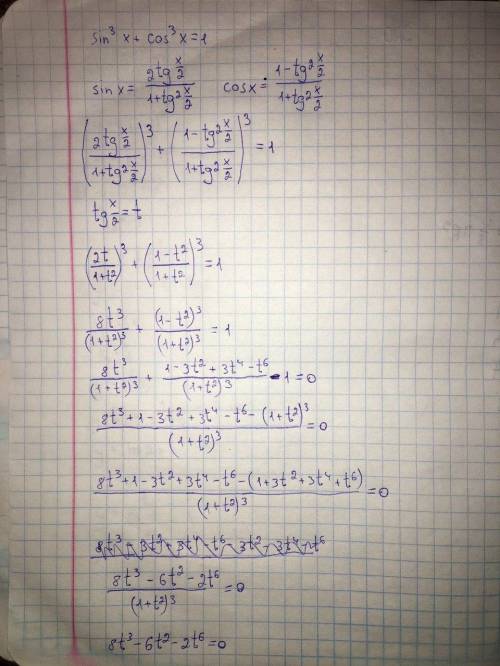 sin³ x + cos³ x = 1
sin x = 2tg x/2 / 1+tg² x/2   cos x = 1-tg² x/2 / 1+tg² x/2
(2tg x/2 / 1+tg² x/2)³ + (1-tg² x/2 / 1+tg² x/2)³ = 1
tg x/2 = t
(2t / 1+t²)³ + (1-t² / 1+t²)³ = 1
8t³ / (1+t²)³ + (1-t²)³ / (1+t²)³ = 1
8t³ / (1+t²)³ + 1-3t²+3t⁴-t⁶ / (1+t²)³ - 1 = 0
8t³+1-3t²+3t⁴-t⁶-(1+t²)³ / (1+t²)³ = 0
8t³+1-3t²+3t⁴-t⁶-(1+3t²+3t⁴+t⁶) / (1+t²)³ = 0
8t³-6t²-2t⁶ / (1+t²)³ = 0
8t³-6t²-2t⁶=0